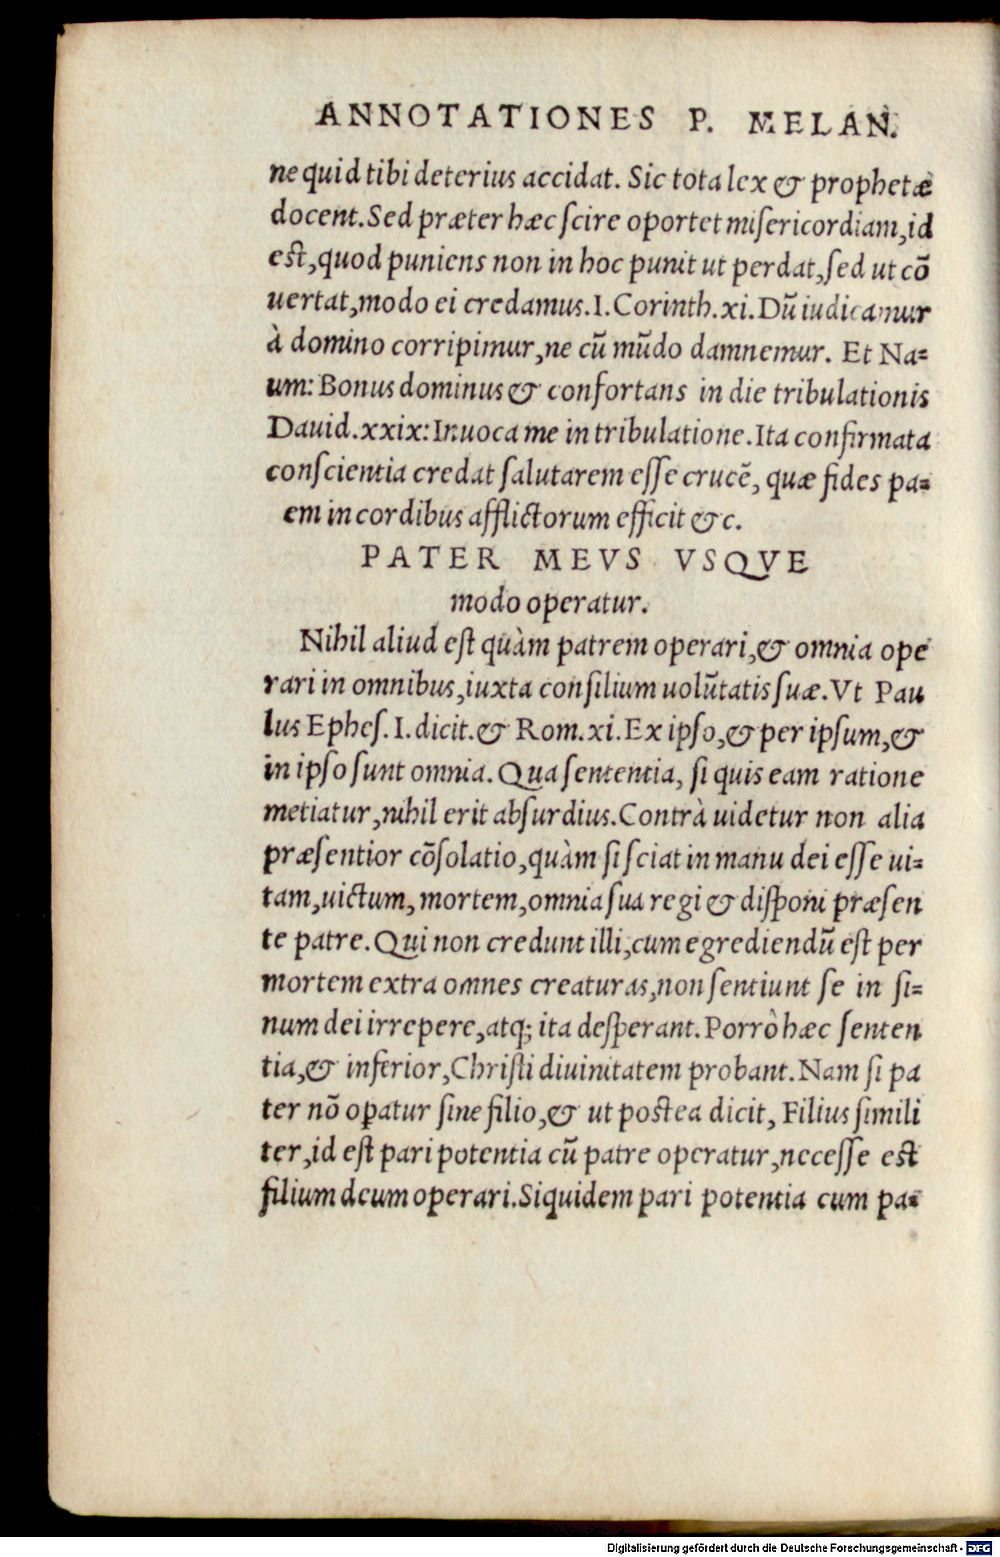 ANNOTATIONES P. MELAN.
ne quid tibi deterius accidat. Sic tota lex & prophetæ
docent. Sed præter hæc ſcire oportet miſericordiam, id
eſt, quod puniens non in hoc punit ut perdat, ſed ut cõ
uertat, modo ei credamus. I. Corinth. xi. Dũ iudicamur
à domino corripimur, ne cũ mũdo damnemur. Et Na=
um: Bonus dominus & confortans in die tribulationis
Dauid. xxix: Inuoca me in tribulatione. Ita confirmata
conſcientia credat ſalutarem eſſe crucẽ, quæ fides pa=
em in cordibus afflictorum efficit &c.
PATER MEVS VSQVE
modo operatur.
Nihil aliud eſt quàm patrem operari, & omnia ope
rari in omnibus, iuxta conſilium uolũtatis ſuæ. Vt Pau
lus Epheſ. I. dicit. & Rom. xi. Ex ipſo, & per ipſum, &
in ipſo ſunt omnia. Qua ſententia, ſi quis eam ratione
metiatur, nihil erit abſurdius. Contrà uidetur non alia
præſentior cõſolatio, quàm ſi ſciat in manu dei eſſe ui=
tam, uictum, mortem, omnia ſua regi & diſponi præſen
te patre. Qui non credunt illi, cum egrediendũ eſt per
mortem extra omnes creaturas, non ſentiunt ſe in ſi=
num dei irrepere, atq; ita deſperant. Porrò hæc ſenten
tia, & inferior, Chriſti diuinitatem probant. Nam ſi pa
ter nõ opatur ſine filio, & ut poſtea dicit, Filius ſimili
ter, id eſt pari potentia cũ patre operatur, neceſſe eſt
filium deum operari. Siquidem pari potentia cum pa=
Digitalisierung gefördert durch die Deutsche Forschungsgemeinschaft - DFG